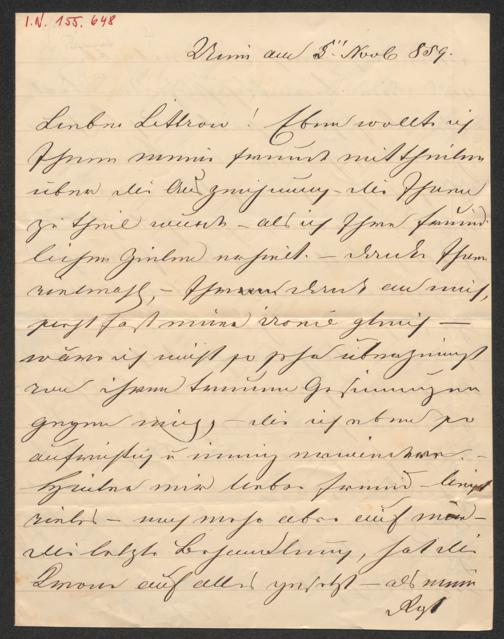 I.N. 155.648
Wien am 5ᵗ Novb 859.
Lieber Littrow! Eben wollte ich
Ihnen meine Freude mittheilen
über die Auszeichnung die Ihnen
zu theil wurde – als ich Ihre freund-
lichen Zeilen erhielt. – danke Ihnen
vielmahls, – Ihren Dank an mich,
fast einer Ironie gleich –
wäre ich nicht so sehr überzeugt
von ihren treuen Gesinnungen
gegen mich, – die ich eben so
aufrichtig u innig erwiedere. –
mir lieber Freund –
vieles – noch mehr aber auf
die letzte Behandlung, hat die
Krone auf alles gesetzt – als mein